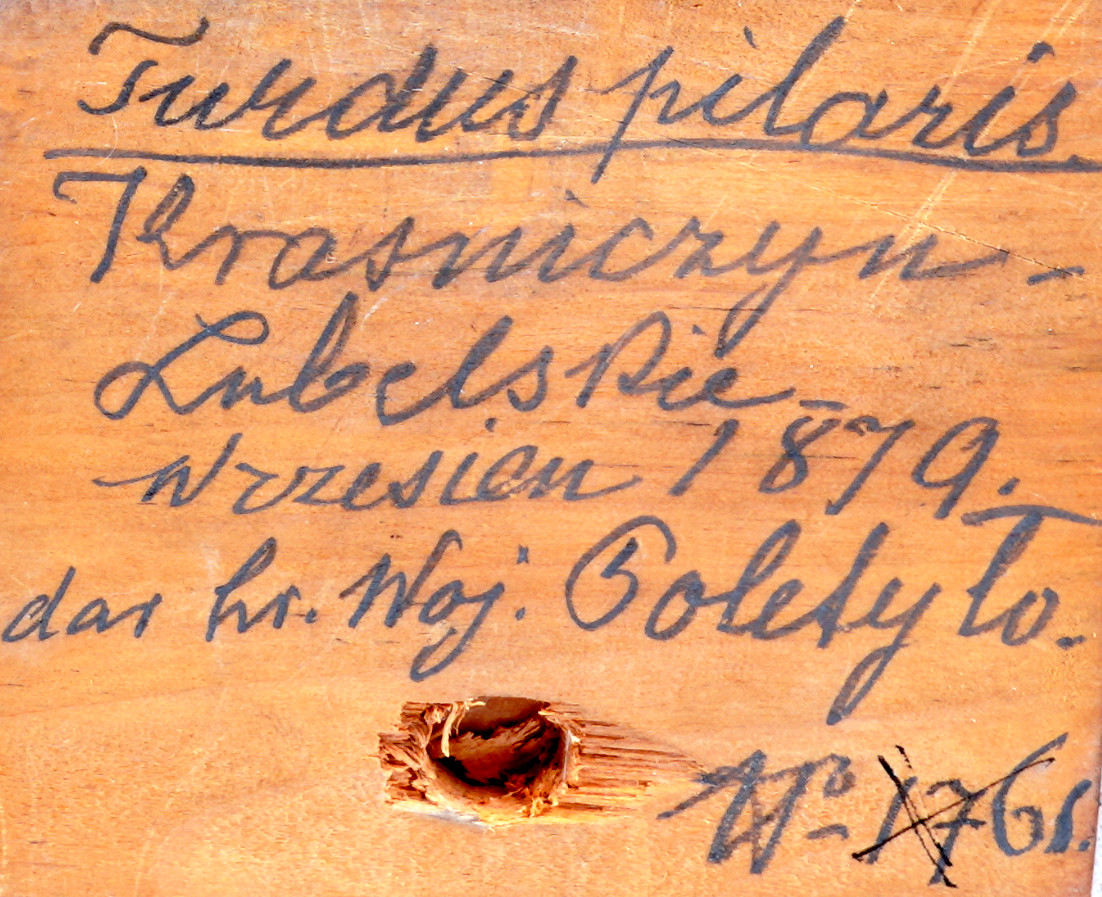 Turdus pilaris.
Krasniczyn -
Lubelskie -
Wrzesień 1879.
dar hr. Woj. Poletyło.
No 1761.